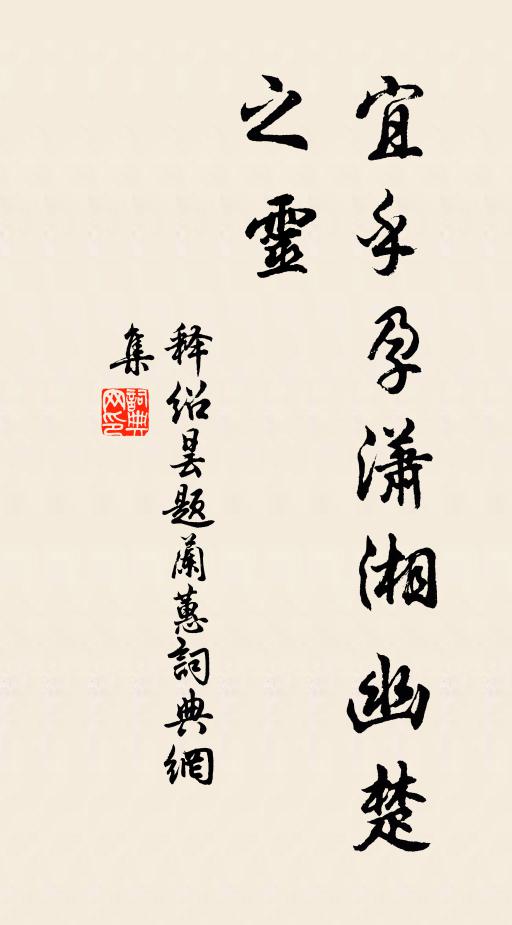 宜乎孕瀟湘幽楚
之靈
释绍昙题蘭蕙詞典網
集
詞典网印